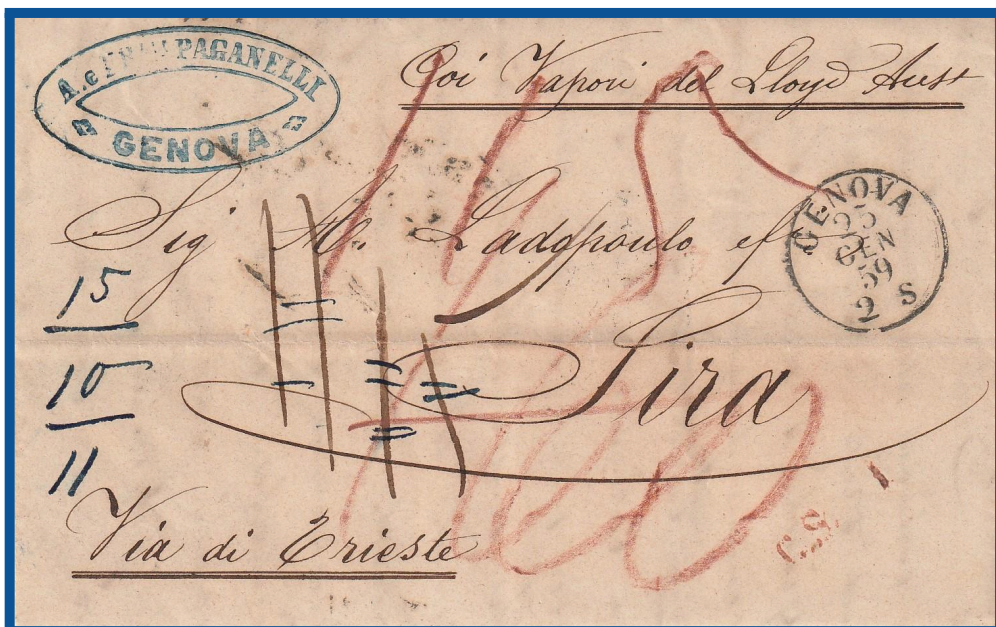 A. e PAGANELLI
GENOVA
Coi Vapori del Lloyd Aust
GENOVA
25
GEN
59
2 S
Sig Ladopoulo e f
Sira
15
10
11
Via di Trieste